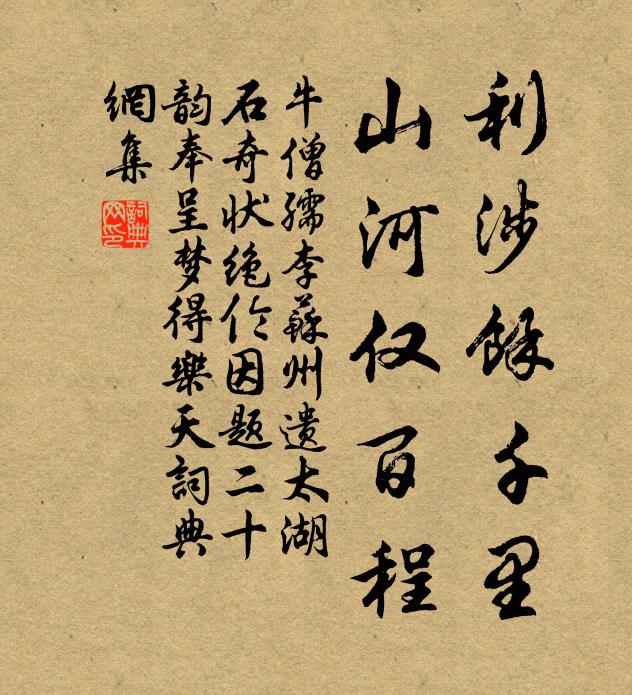 利涉餘千里
山河仅百程
牛僧孺李蘇州遺太湖
石奇状绝伦因题二十
韵奉呈梦得樂天詞典
網集
詞典網印